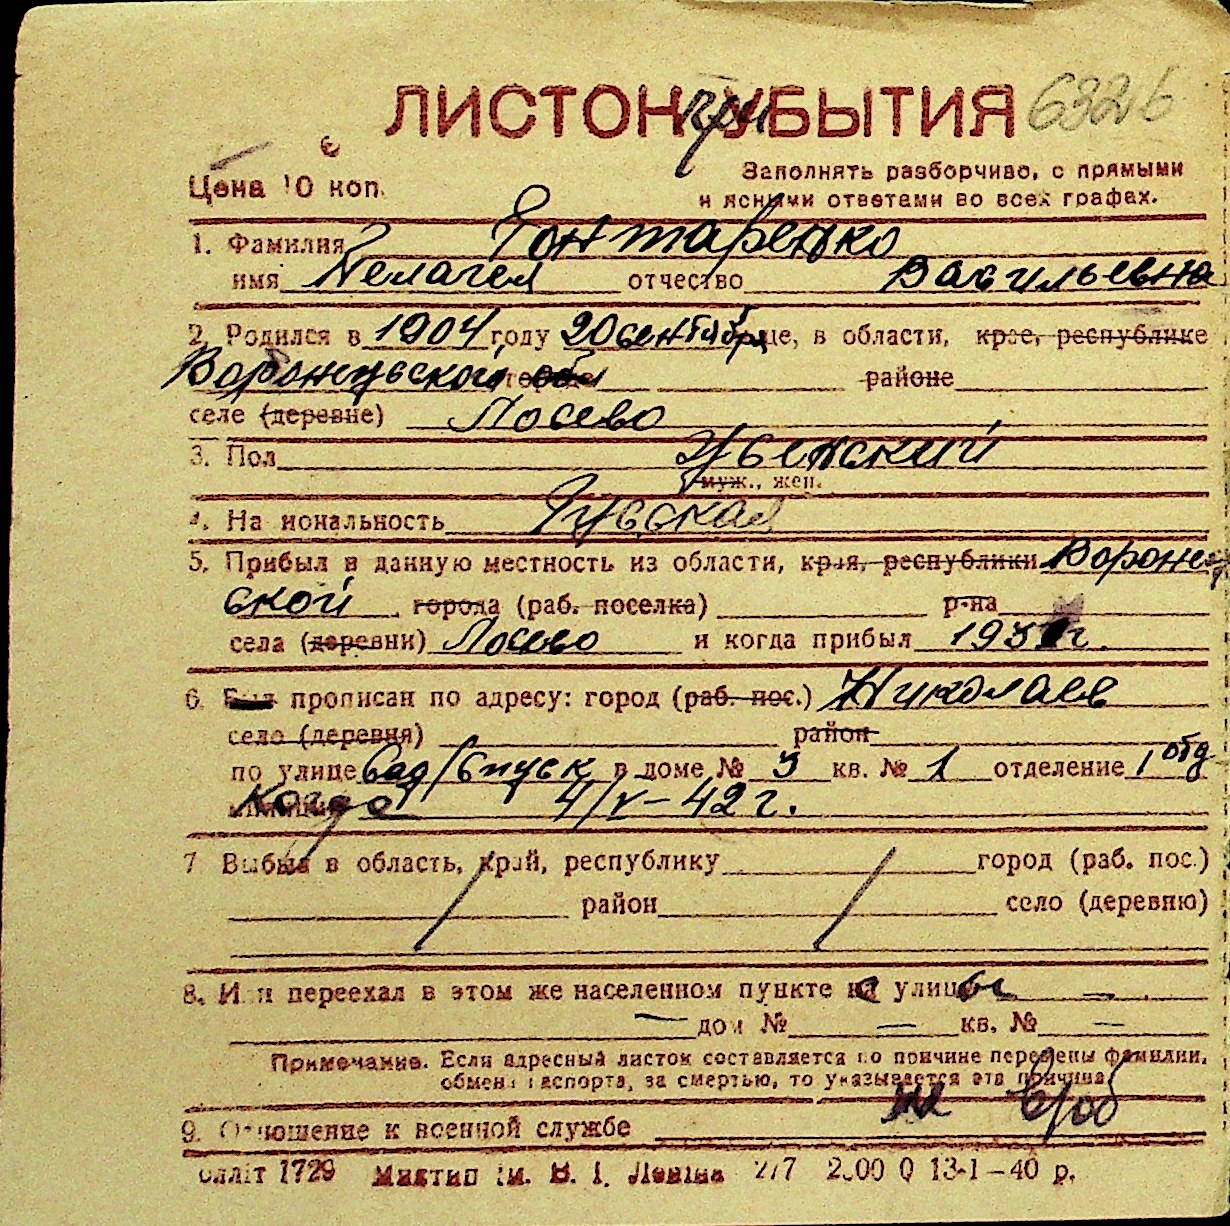 ЛИСТОК УБЫТИЯ при 6326
Цена 10 коп. Заполнять разборчиво, с прямыми
и ясными ответами во всех графах.
1. Фамилия Гонтаренко
имя Пелагея отчество Васильевна
2. Родился в 1904 году 20 сентября це, в области, крае, республике
Воронежской обл районе
селе (деревне) Лосево
3. Пол Женский
муж., жен.
4. Национальность Русская
5. Прибыл в данную местность из области, края, республики Воронеж
ской города (раб. поселка) р-на
села (деревни) Лосево и когда прибыл 193 г.
6. Был прописан по адресу: город (раб. пос.) Николаев
село (деревня) район
по улице Сад/Спуск в доме № 3 кв. № 1 отделение 1 отд
Когда 4/V-42 г.
7 Выбыл в область, край, республику город (раб. пос.)
район село (деревню)
8. Или переехал в этом же населенном пункте на улицу —
— дом № — кв. № —
Примечание. Если адресный листок составляется по причине перемены фамилии,
обмена паспорта, за смертью, то указывается эта причина
9. Отношение к военной службе
облліт 1729 Миктип ім. В. І. Леніна 2/7 2.00 0 13-1-40 р.